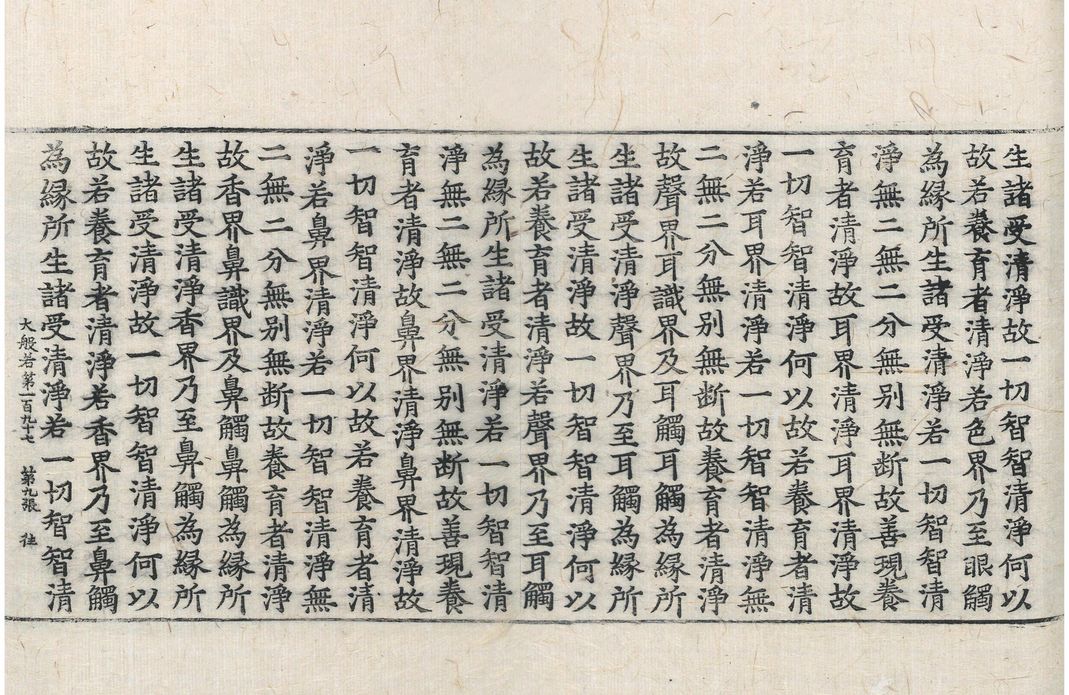 生諸受清淨故一切智智清淨何以
故若養育者清淨若色界乃至眼觸
為緣所生諸受清淨若一切智智清
淨無二無二分無别無断故善現養
育者清淨故耳界清淨耳界清淨故
一切智智清淨何以故若養育者清
淨若耳界清淨若一切智智清淨無
二無二分無别無断故養育者清淨
故聲界耳識界及耳觸耳觸為緣所
生諸受清淨聲界乃至耳觸為緣所
生諸受清淨故一切智智清淨何以
故若養育者清淨若聲界乃至耳觸
為緣所生諸受清淨若一切智智清
淨無二無二分無别無断故善現養
育者清淨故鼻界清淨鼻界清淨故
一切智智清淨何以故若養育者清
淨若鼻界清淨若一切智智清淨無
二無二分無别無断故養育者清淨
故香界鼻識界及鼻觸鼻觸為緣所
生諸受清淨香界乃至鼻觸為緣所
生諸受清淨故一切智智清淨何以
故若養育者清淨若香界乃至鼻觸
為緣所生諸受清淨若一切智智清
大般若第一百九十七 第九張 往